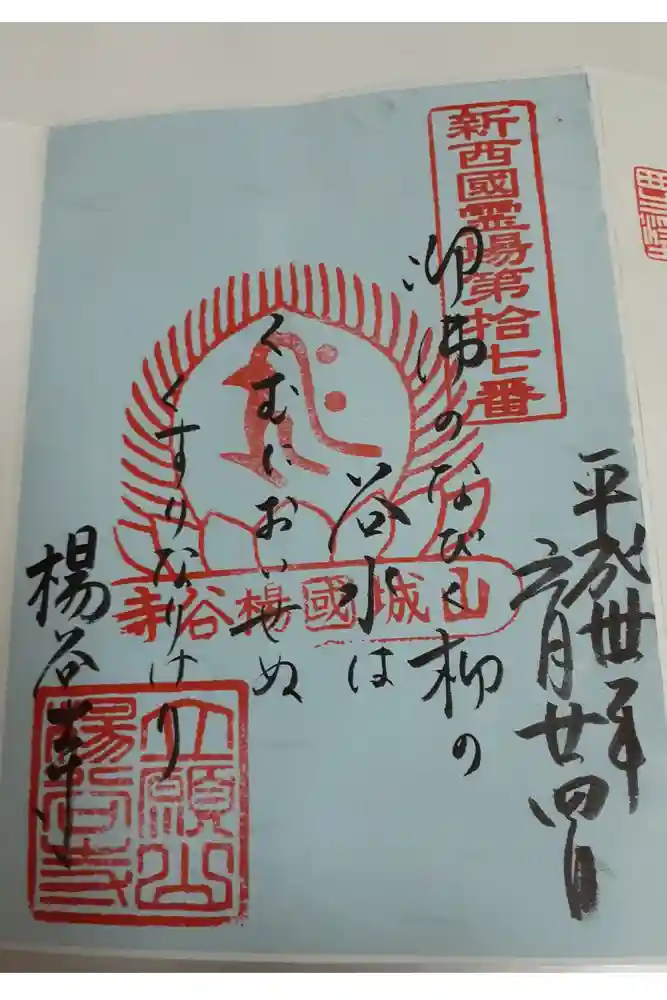 新西國霊場第拾七番
平成丗年
六月廿四日
御佛のなびく柳の
谷水は
くむにおいせぬ
くすりなりけり
山城國楊谷寺
楊谷寺
立願山
楊谷寺